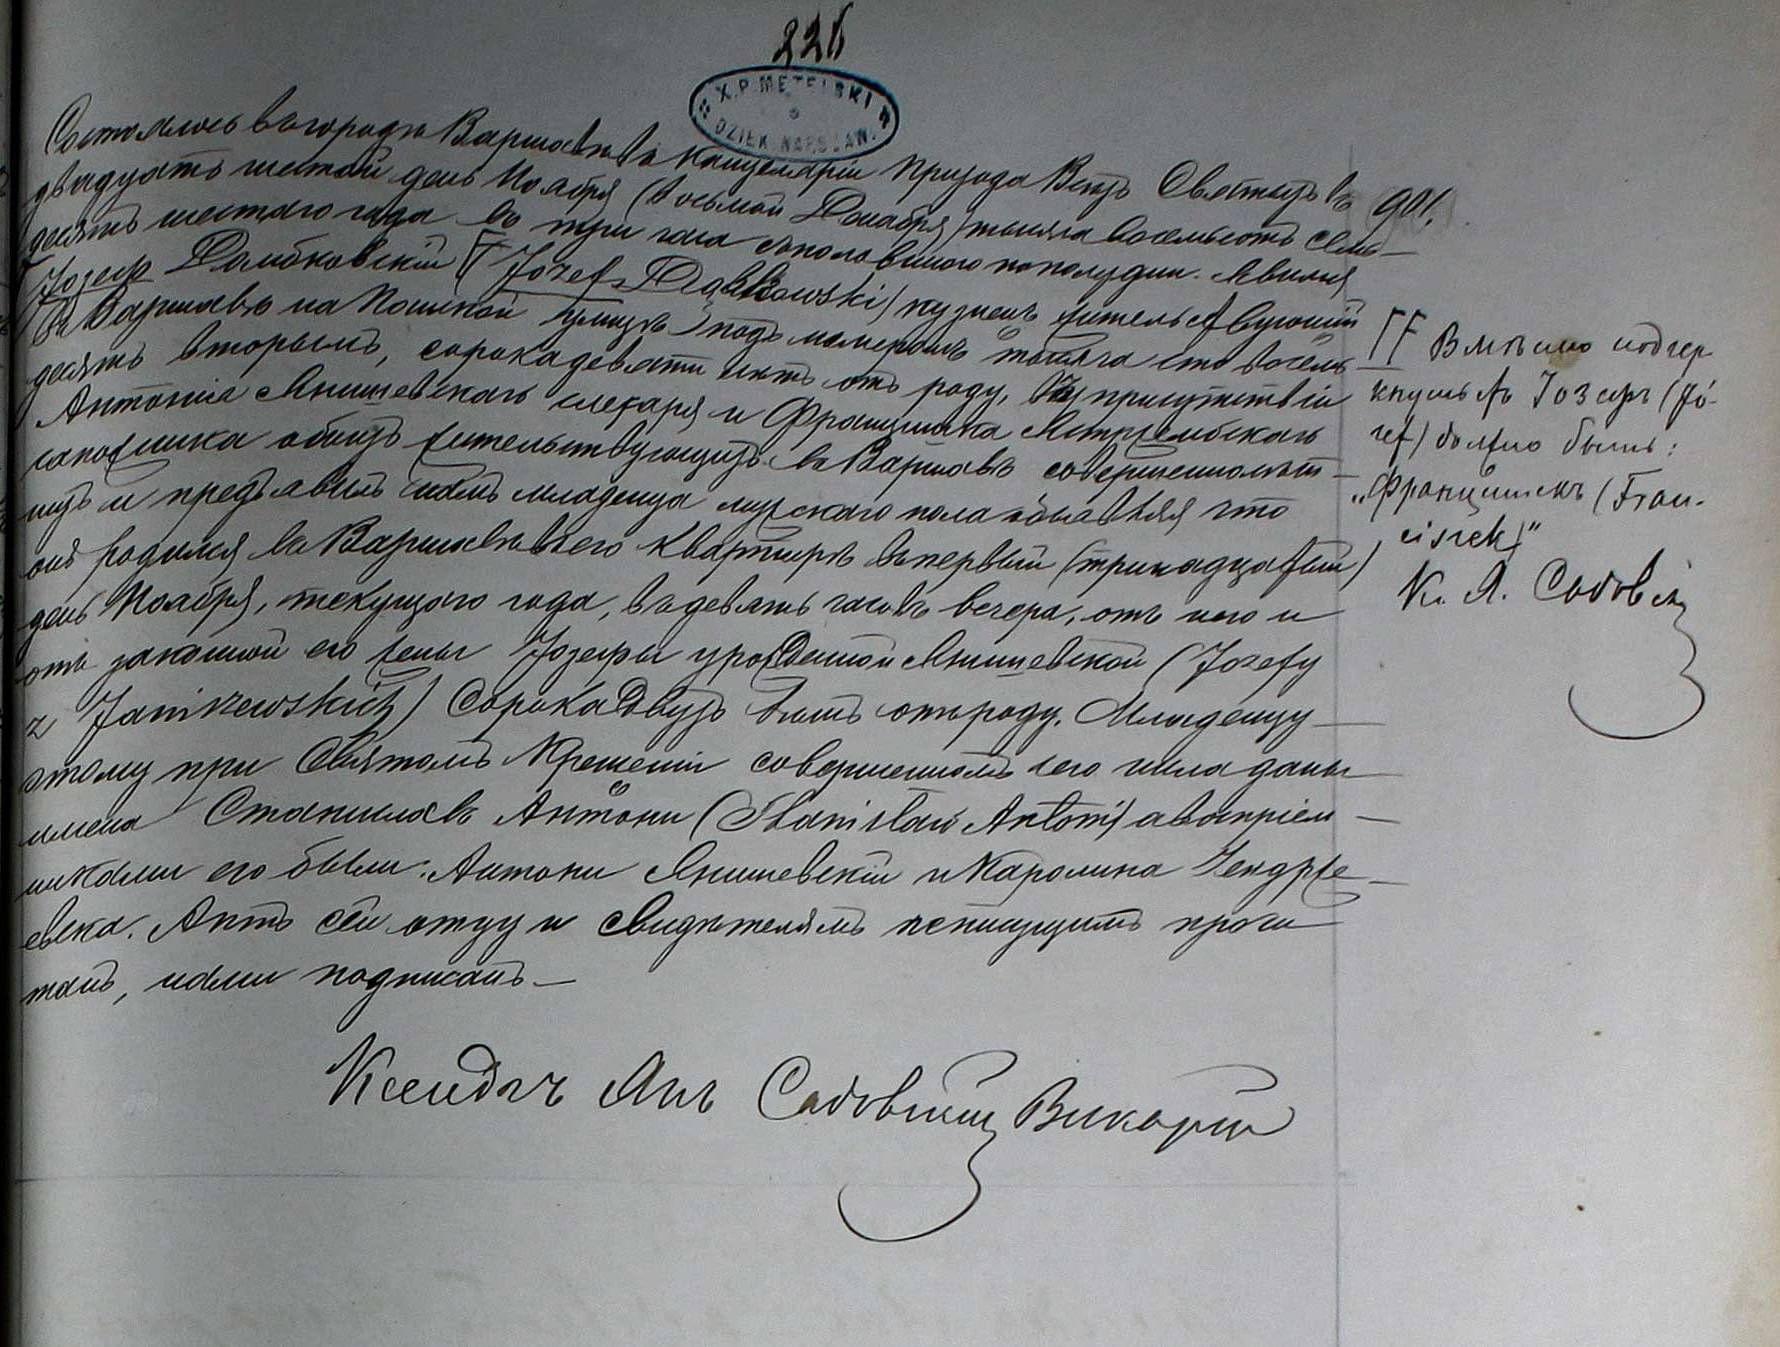 226
X. P. METELSKI
DZIEK. WARSZAW.
Состоялось въ городѣ Варшавѣ въ канцеляріи Прихода Всѣхъ Святыхъ въ
901.
двадцать шестой день Ноября (восьмой Декабря) тысяча восемьсотъ семь-
десятъ шестаго года въ три часа съ половиною пополудни. Явился
Іозефъ Домбковскій (Józef Dąbkowski) кузнецъ жительствующій
въ Варшавѣ на улицѣ подъ номеромъ тысяча сто восемь
десятъ вторымъ, сорока девяти лѣтъ отъ роду, въ присутствіи
Антонія Янишевскаго слесаря и Францишка Ястржембскаго
сапожника обоихъ жительствующихъ въ Варшавѣ совершеннолѣт-
нихъ и предъявилъ намъ младенца мужскаго пола объявляя что
онъ родился въ Варшавѣ въ его квартирѣ въ первый (тринадцатый)
день Ноября, текущаго года, въ девять часовъ вечера, отъ него и
отъ законной его жены Іозефы урожденной Янишевской (Józefy
z Janiszewskich) сорока двухъ лѣтъ отъ роду. Младенцу
этому при Святомъ Крещеніи совершенномъ сего числа даны
имена Станиславъ Антони (Stanisław Antoni) а воспріем-
никами его были: Антони Янишевскій и Каролина Іендрже-
евска. Актъ сей отцу и свидѣтелямъ непишущимъ прочи
танъ, нами подписанъ.
Ксендзъ Янъ Садовскій Викарій
Вмѣсто подчер
кнутыхъ Іозефъ (Jó-
zef) должно быть:
„Францишекъ (Fran-
ciszek)"
Кс. Я. Садовскій